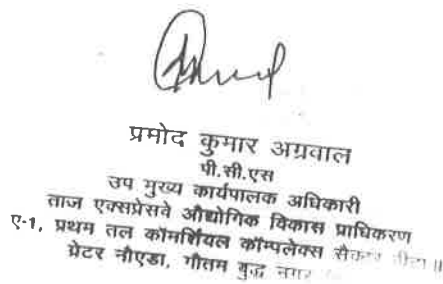 प्रमोद कुमार अग्रवाल
पी.सी.एस
उप मुख्य कार्यपालक अधिकारी
ताज एक्सप्रेसवे औद्योगिक विकास प्राधिकरण
ए-1, प्रथम तल कॉमर्शियल कॉम्पलेक्स सैक्टर बीटा॥
ग्रेटर नौएडा, गौतम बुद्ध नगर